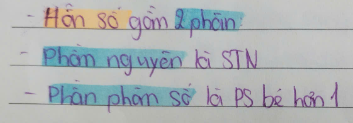 - Hỗn số gồm 2 phần:
- Phần nguyên là STN
- Phần phân số là PS bé hơn 1